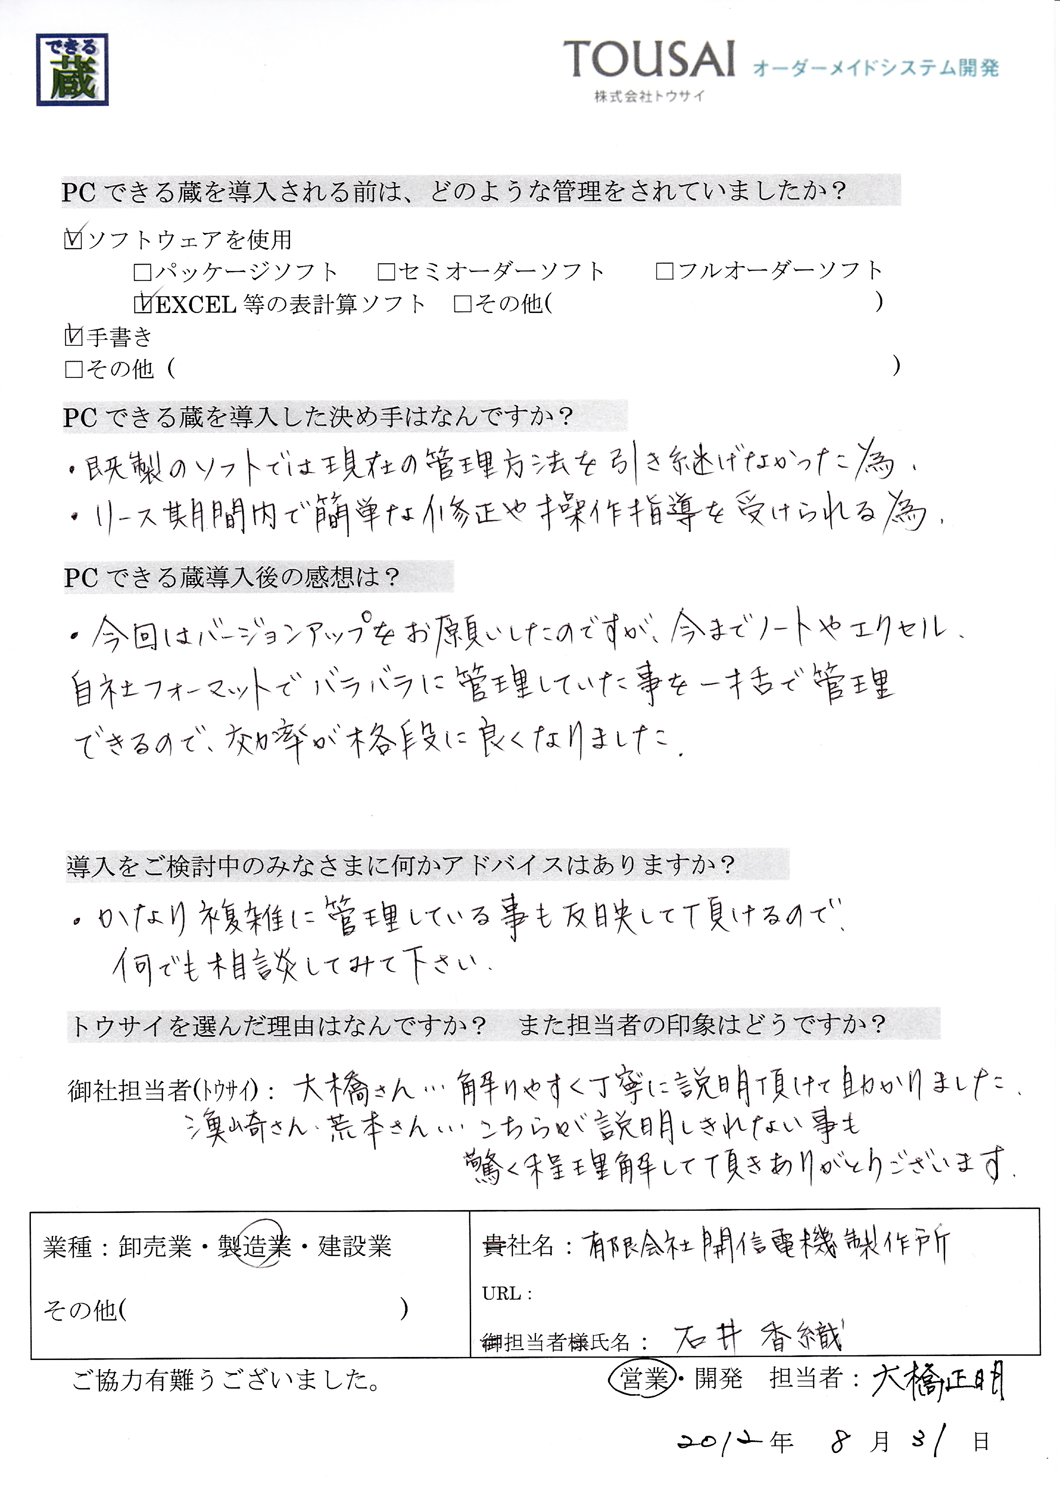 できる
蔵
TOUSAI オーダーメイドシステム開発
株式会社トウサイ
PCできる蔵を導入される前は、どのような管理をされていましたか？
☑ソフトウェアを使用
□パッケージソフト □セミオーダーソフト □フルオーダーソフト
☑EXCEL 等の表計算ソフト □その他( )
☑手書き
□その他 ( )
PCできる蔵を導入した決め手はなんですか？
・既製のソフトでは現在の管理方法を引き継げなかった為.
・リース期間内で簡単な修正や操作指導を受けられる為.
PCできる蔵導入後の感想は？
・今回はバージョンアップをお願いしたのですが、今までノートやエクセル、
自社フォーマットでバラバラに管理していた事を一括で管理
できるので、効率が格段に良くなりました.
導入をご検討中のみなさまに何かアドバイスはありますか？
・かなり複雑に管理している事も反映して頂けるので、
何でも相談してみて下さい.
トウサイを選んだ理由はなんですか？ また担当者の印象はどうですか？
御社担当者(ﾄｳｻｲ)： 大橋さん… 解りやすく丁寧に説明頂けて助かりました.
漁﨑さん・荒本さん… こちらが説明しきれない事も
驚く程理解して頂きありがとうございます.
業種：卸売業・製造業・建設業
その他( )
貴社名：有限会社開信電機製作所
URL：
御担当者様氏名： 石井 香織
ご協力有難うございました。
営業・開発 担当者：大橋正明
2012年 8月31日